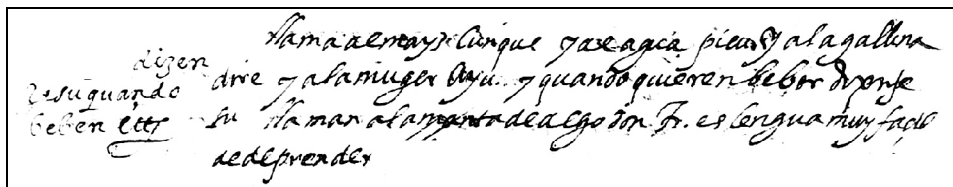 llama al mays Cunque y al agua pica y a la gallina
dizen
drie y a la muger Ayu. y quando quieren beber dizense
Jesu quando
beben ettz
su llaman a la manta de algodon Fr. es lengua muy facil
de deprender